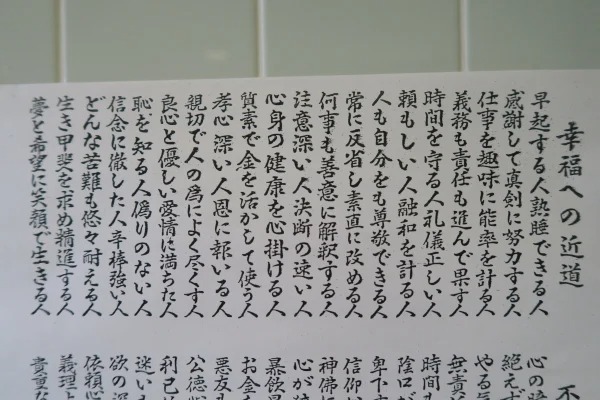 幸福への近道
早起する人熟睡できる人
感謝して真剣に努力する人
仕事を趣味に能率を計る人
義務も責任も進んで果す人
時間を守る人礼儀正しい人
頼もしい人融和を計る人
人も自分をも尊敬できる人
常に反省し素直に改める人
何事も善意に解釈する人
注意深い人決断の速い人
心身の健康を心掛ける人
質素で金を活かして使う人
孝心深い人恩に報いる人
親切で人の爲によく尽くす人
良心と優しい愛情に満ちた人
恥を知る人僞りのない人
信念に徹した人辛棒強い人
どんな苦難も悠々耐える人
生き甲斐を求め精進する人
夢と希望に笑顔で生きる人
不
心の
絶えず
やる気
無責
時間
陰口が
卑下
信仰
神仏
心が
暴飲
お金
悪友
公徳心
利己
迷い
欲の深
依頼心
義理
貴重な